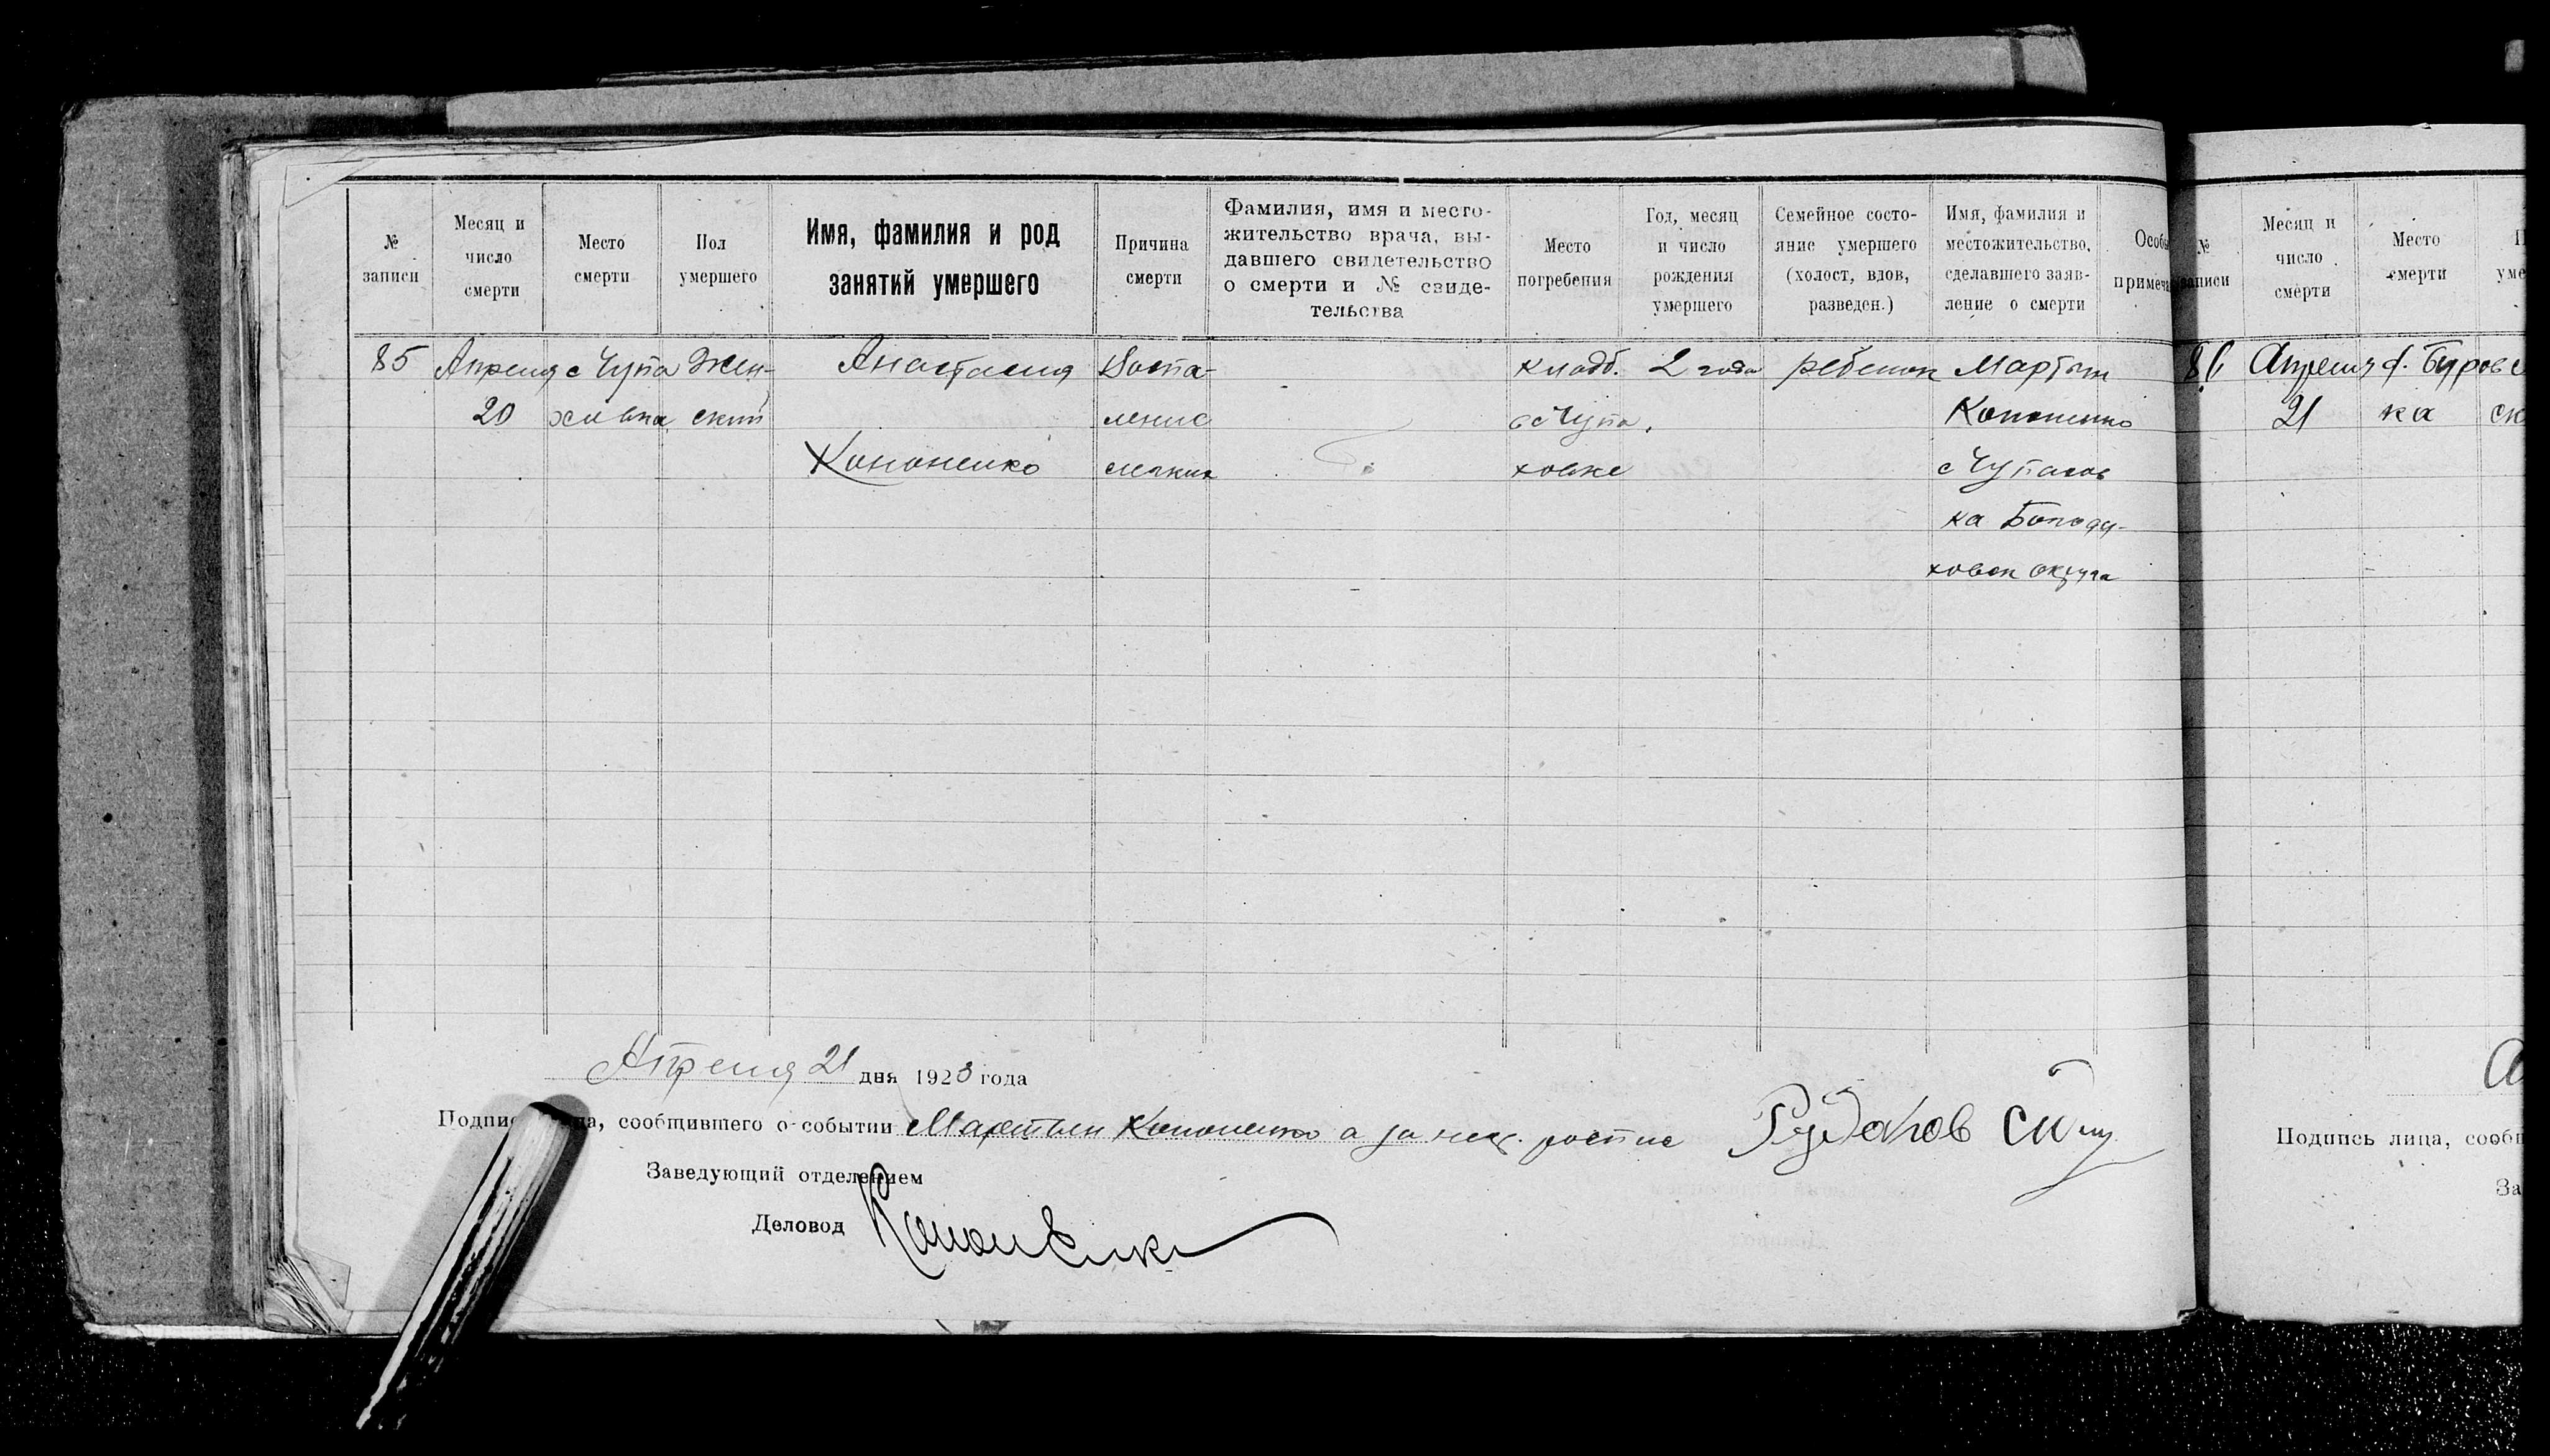 № записи
Месяц и число смерти
Место смерти
Пол умершего
Имя, фамилия и род занятий умершего
Причина смерти
Фамилия, имя и место-
жительство врача, вы-
давшего свидетельство
о смерти и № свиде-
тельства
Место погребения
Год, месяц и число рождения умершего
Семейное состо-
яние умершего
(холост, вдов,
разведен.)
Имя, фамилия и
местожительство,
сделавшего заяв-
ление о смерти
85 Апреля с Чупа Жен- Анастасия Воспа- кладб. 2 года ребенок Мартын
20 ховка ский ление с Чупа. Кононенко
Кононенко легких ховке с Чупахов
ка Богоду-
ховск округа
Апреля 21 дня 1923 года
лица, сообщившего о событии Мартын Кононенко а за роспис
Заведующий отделением
Деловод Кононенко
№ записи
Месяц и число смерти
Место смерти
86 Апреля
21 ка
Подпись лица, сооб
За